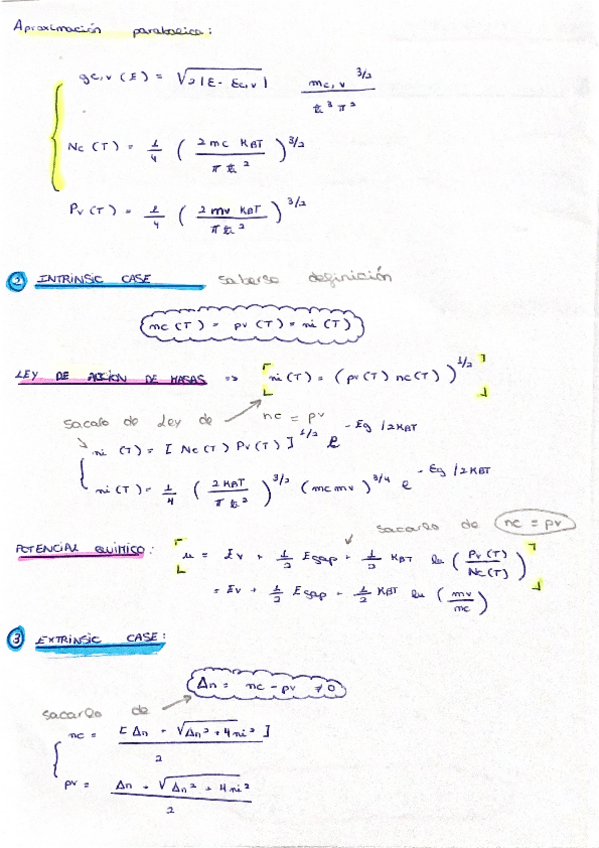 Aproximación parabolica:
gc,v (E) = √2|E - Ec,v| mc,v^3/2 / ħ^3 π^2
Nc (T) = 1/4 ( 2 mc KBT / π ħ^2 )^3/2
Pv (T) = 1/4 ( 2 mv KBT / π ħ^2 )^3/2
② INTRINSIC CASE saberse definición
nc (T) = pv (T) = ni (T)
LEY DE ACCION DE MASAS => [ ni (T) = (pv (T) nc (T))^1/2 ]
sacalo de Ley de nc = pv
ni (T) = [ Nc (T) Pv (T) ]^1/2 e^- Eg /2KBT
ni (T) = 1/4 ( 2 KBT / π ħ^2 )^3/2 (mc mv)^3/4 e^- Eg /2KBT
sacarlo de nc = pv
POTENCIAL QUIMICO: [ μ = Ev + 1/2 Egap + 1/2 KBT ln ( Pv (T) / Nc (T) ) ]
= Ev + 1/2 Egap + 1/2 KBT ln ( mv / mc )
③ EXTRINSIC CASE:
Δn = nc - pv ≠ 0
sacarlo de
nc = [ Δn + √Δn² + 4ni² ] / 2
pv = Δn + √Δn² + 4ni² / 2